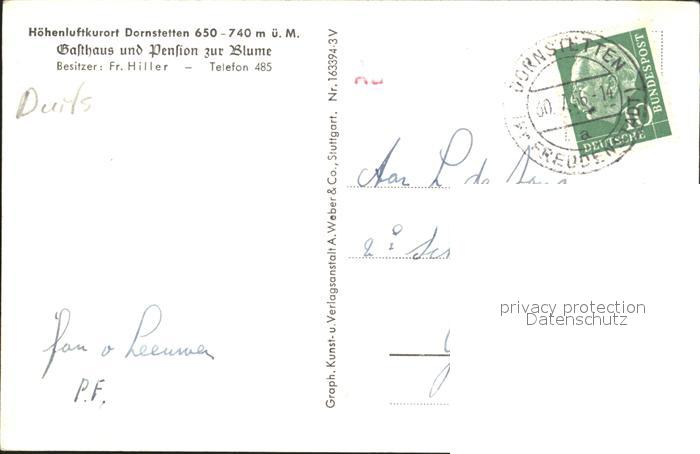 Höhenluftkurort Dornstetten 650 - 740 m ü. M.
Gasthaus und Pension zur Blume
Besitzer: Fr. Hiller — Telefon 485
Duits
Jan v Leeuwen
P.F.
Graph. Kunst- u. Verlagsanstalt A. Weber & Co., Stuttgart. Nr. 163394·3 V
DORNSTETTEN
FREUDEN
a
DEUTSCHE
BUNDESPOST
10
Aan L de
2e
privacy protection
Datenschutz